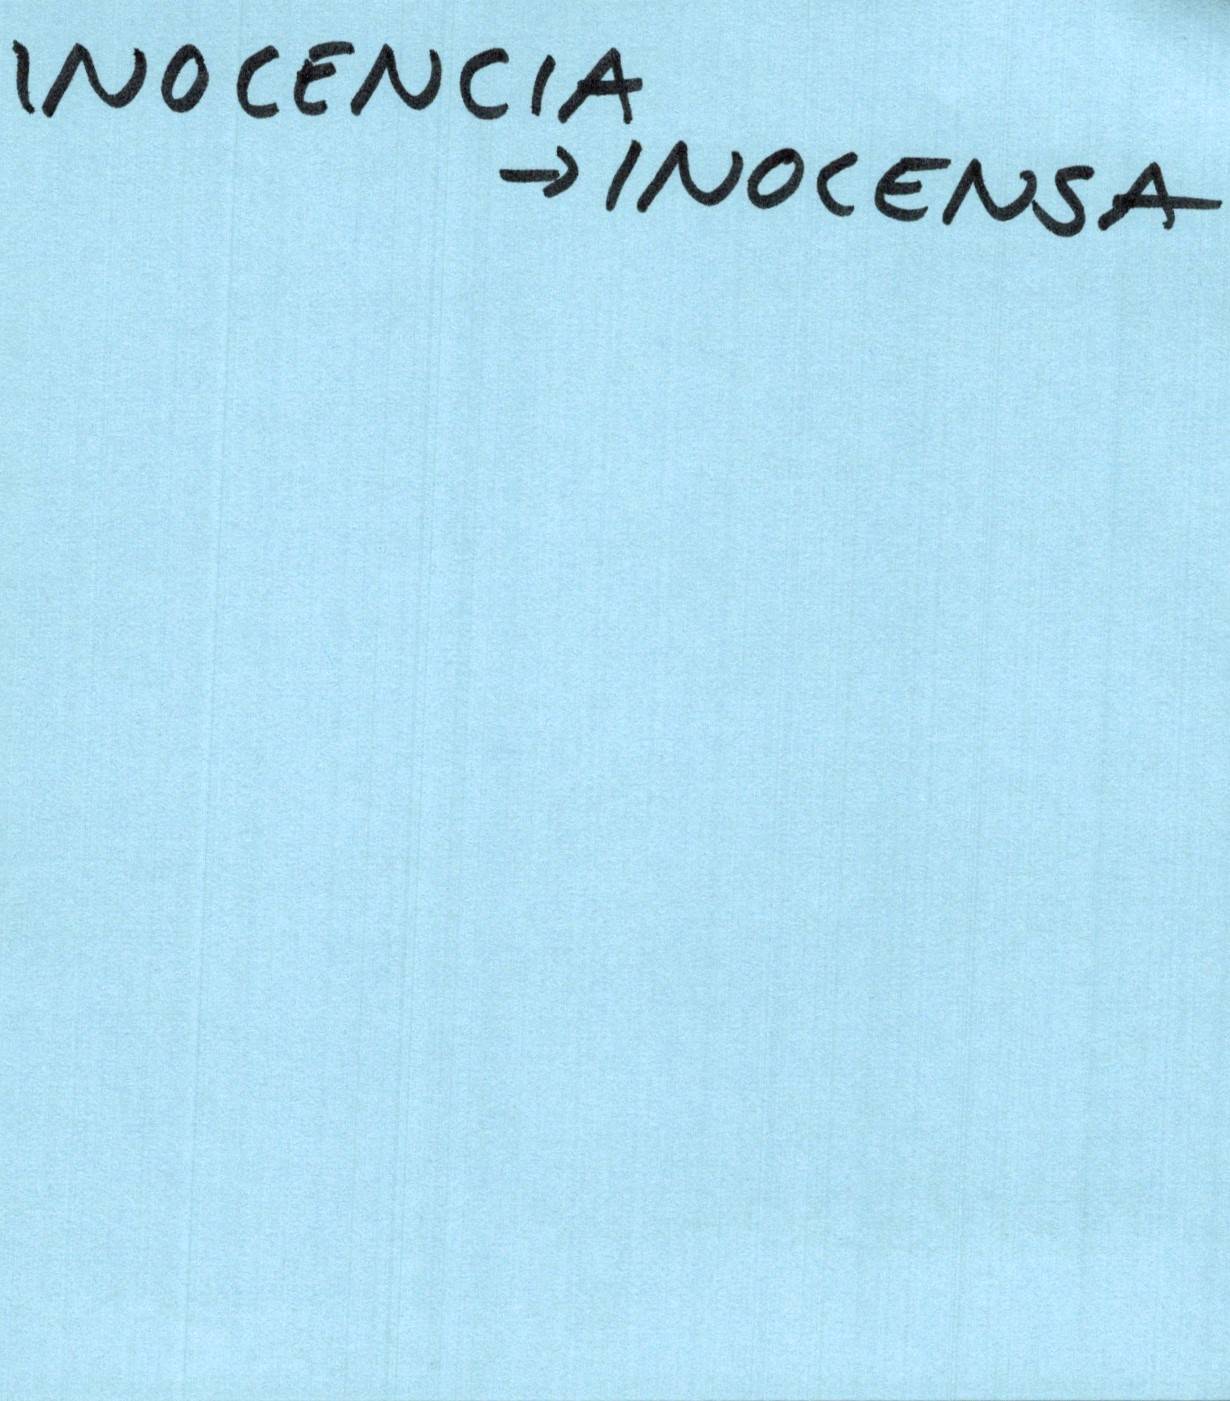 INOCENCIA
→INOCENSA